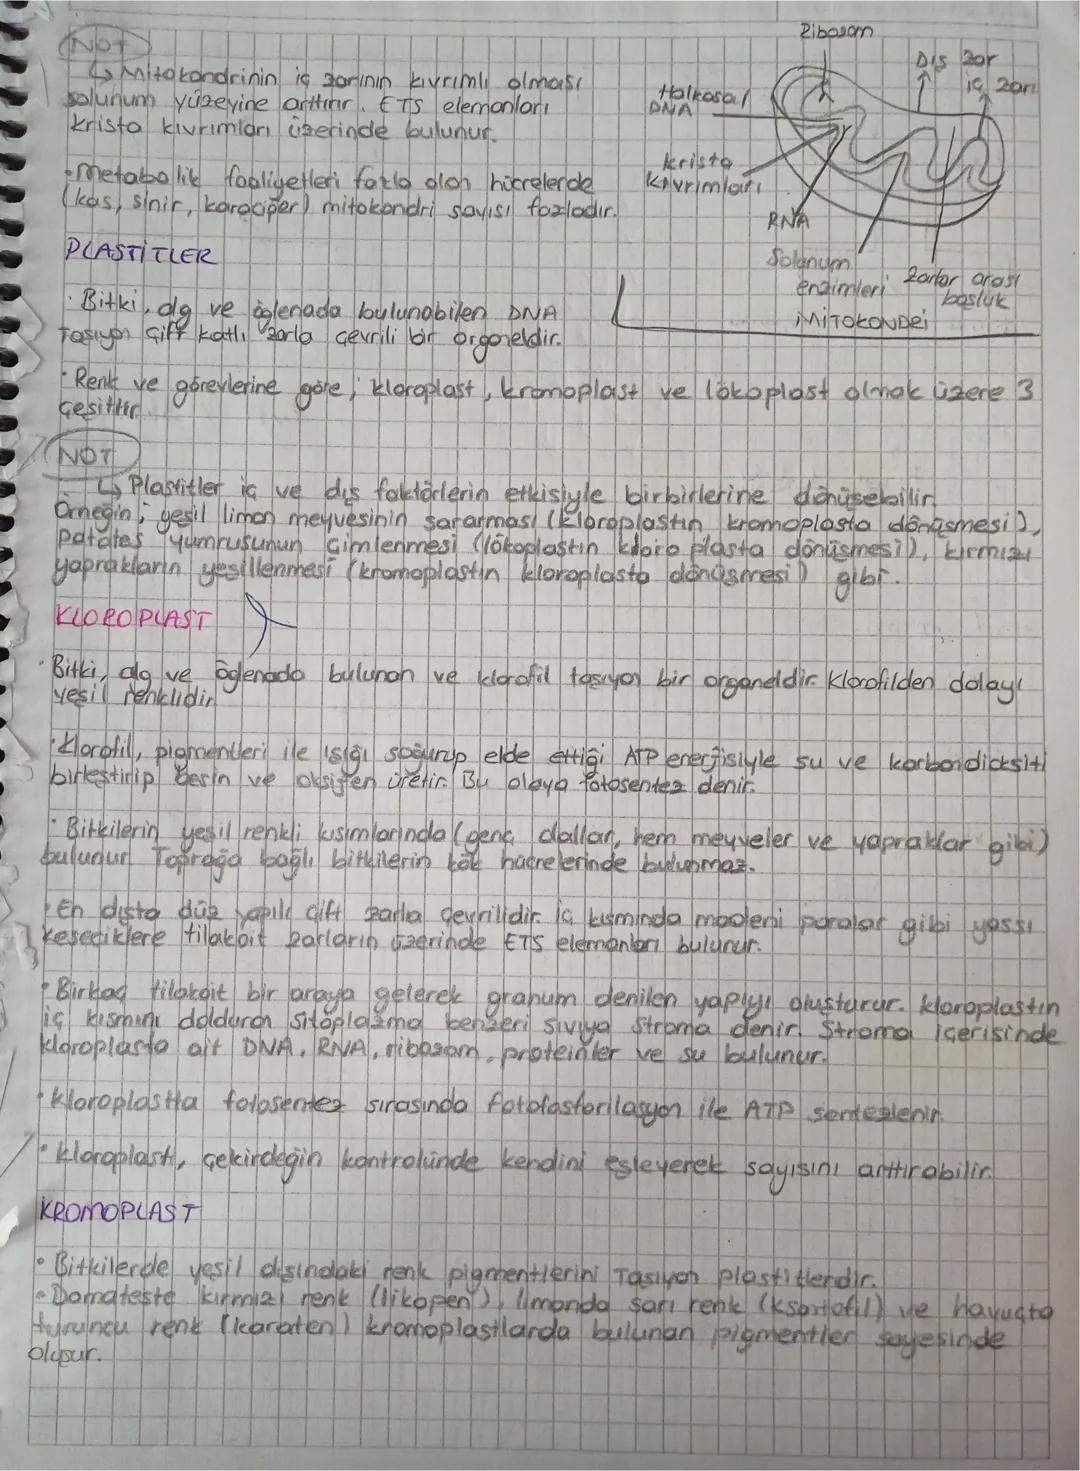 NOT
↳ Mitokondrinin iç zarının kıvrımlı olması
solunum yüzeyine arttırır. ETS elemanları
krista kıvrımları üzerinde bulunur.
• Metabolik faaliyetleri fazla olan hücrelerde
(kas, sinir, karaciğer) mitokondri sayısı fazladır.
Ribozom
Dış zar
iç zarı
Halkasal
DNA
krista
kıvrımları
RNA
Solunum
enzimleri
Zarlar arası
boşluk
MİTOKONDRİ
PLASTİTLER
• Bitki, alg ve öglenada bulunabilen DNA
Taşıyan çift katlı zarla çevrili bir organeldir.
• Renk ve görevlerine göre; kloroplast, kromoplast ve lökoplast olmak üzere 3
çeşittir.
NOT
↳ Plastitler iç ve dış faktörlerin etkisiyle birbirlerine dönüşebilir.
Örneğin; yeşil limon meyvesinin sararması (kloroplastın kromoplasta dönüşmesi),
Patates yumrusunun çimlenmesi (lökoplastın kloroplasta dönüşmesi), kırmızı
yaprakların yeşillenmesi (kromoplastın kloroplasta dönüşmesi) gibi.
KLOROPLAST
• Bitki, alg ve öglenada bulunan ve klorofil taşıyan bir organeldir. Klorofilden dolayı
yeşil renklidir.
• Klorofil, pigmentleri ile ışığı soğurup elde ettiği ATP enerjisiyle su ve karbondioksiti
birleştirip besin ve oksijen üretir. Bu olaya fotosentez denir.
• Bitkilerin yeşil renkli kısımlarında (genç dallar, hem meyveler ve yapraklar gibi)
bulunur. Toprağa bağlı bitkilerin kök hücrelerinde bulunmaz.
• En dışta düz yapılı çift zarla çevrilidir. İç kısmında madeni paralar gibi yassı
keseciklere tilakoit zarların üzerinde ETS elemanları bulunur.
• Birkaç tilakoit bir araya gelerek granum denilen yapıyı oluşturur. Kloroplastın
iç kısmını dolduran sitoplazma benzeri sıvıya Stroma denir. Stroma içerisinde
kloroplasta ait DNA, RNA, ribozom, proteinler ve su bulunur.
• Kloroplastta fotosentez sırasında fotofosforilasyon ile ATP sentezlenir.
• Kloroplast, çekirdeğin kontrolünde kendini eşleyerek sayısını arttırabilir.
KROMOPLAST
• Bitkilerde yeşil dışındaki renk pigmentlerini Taşıyan plastitlerdir.
• Domateste kırmızı renk (likopen), limonda sarı renk (ksantofil) ve havuçta
turuncu renk (karoten) kromoplastlarda bulunan pigmentler sayesinde
oluşur.